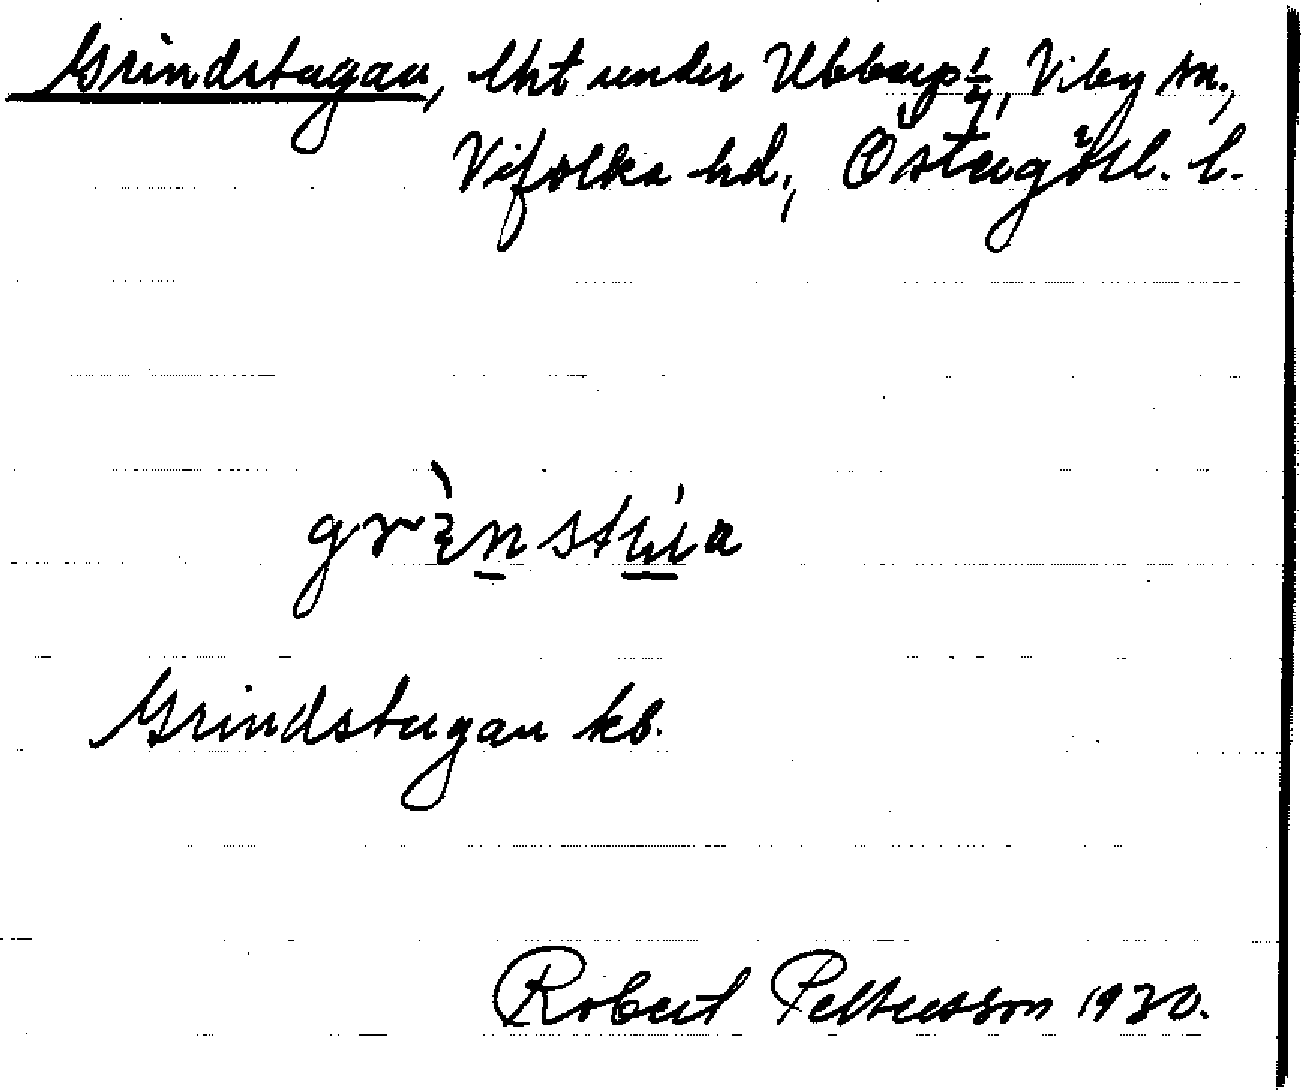 Grindstugan, lht under Ubbarp 1/4, Viby sn.,
Vifolka hd., Östergötl. l.
Grindstugan kb.
Robert Pettersson 1930.